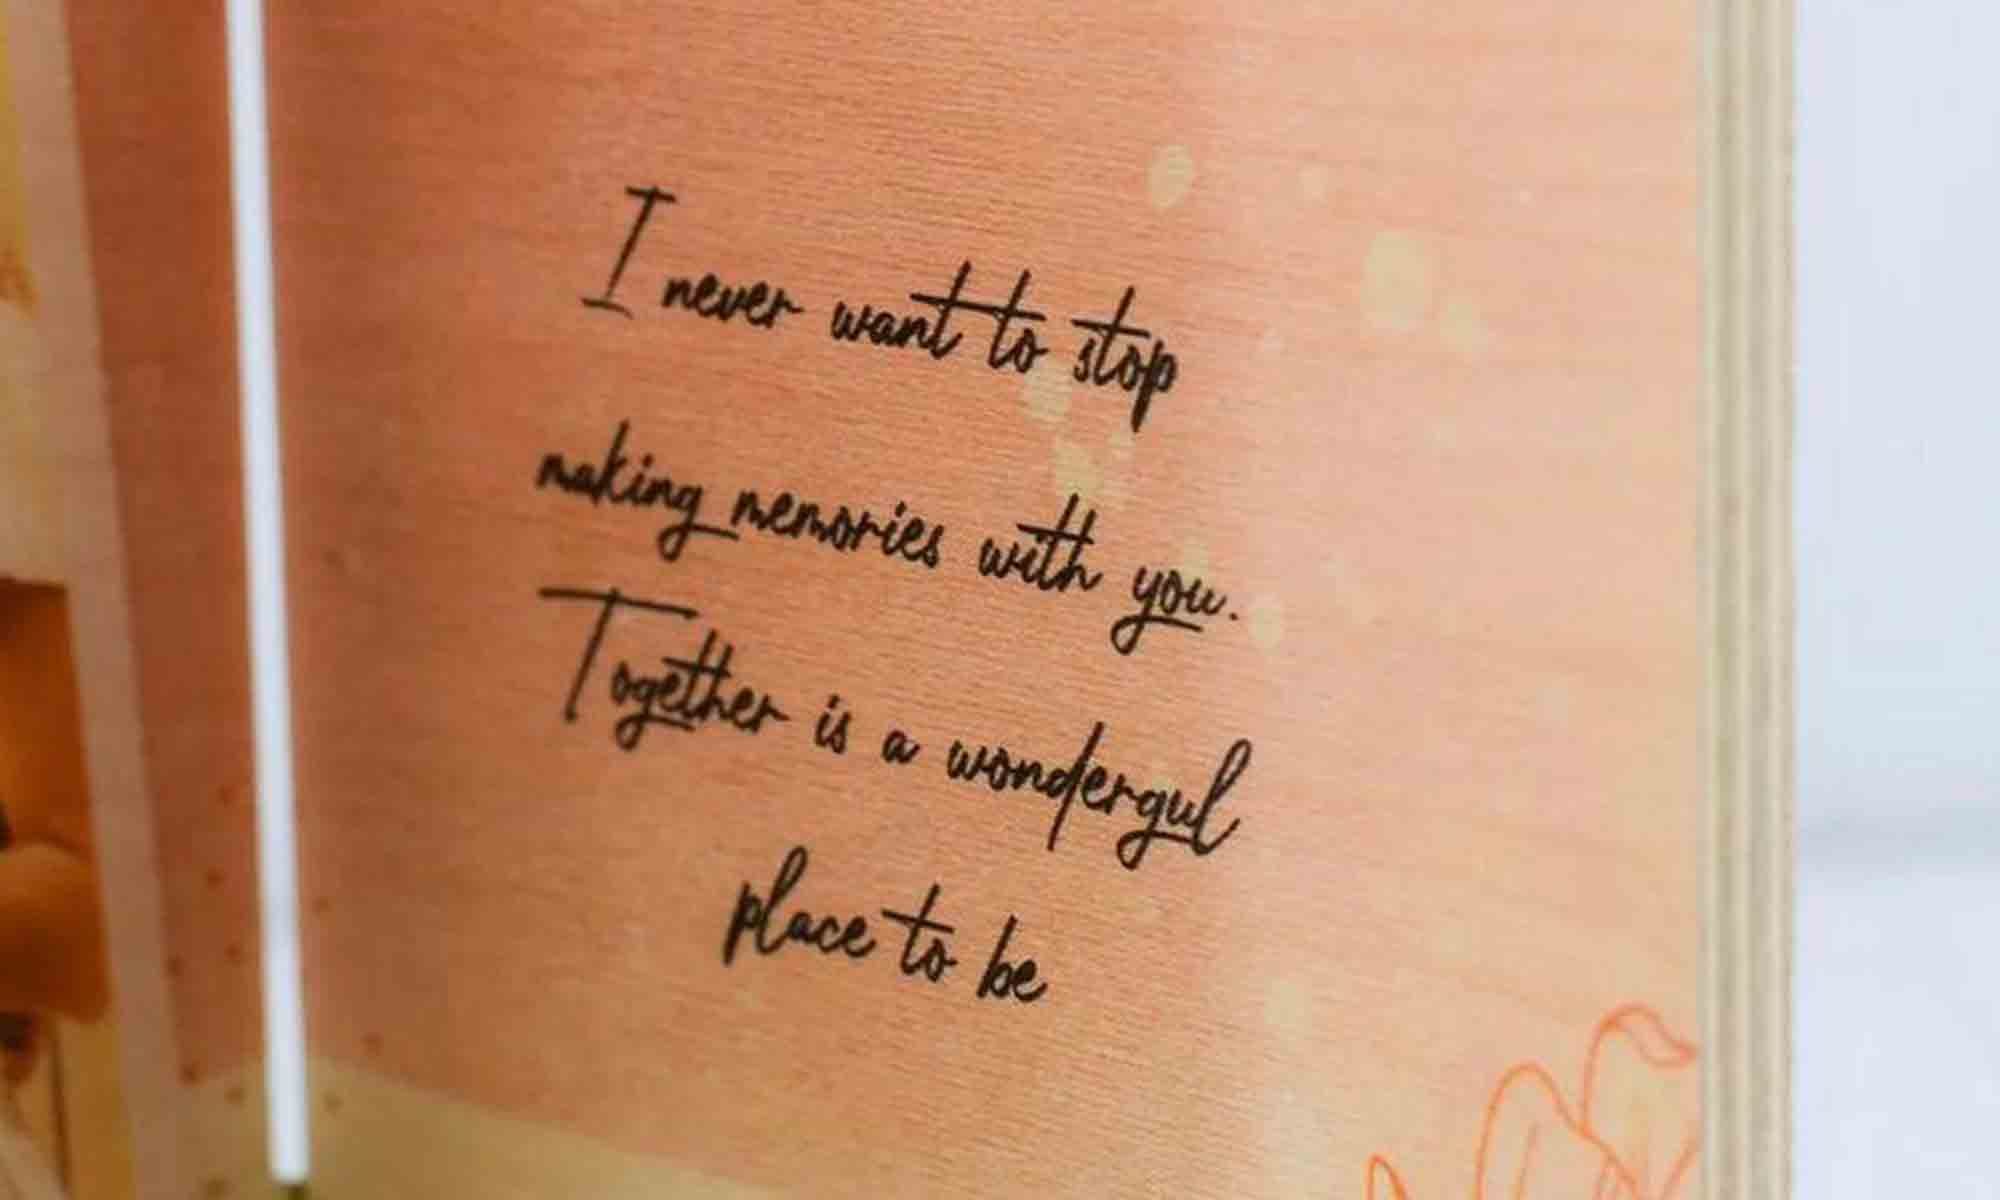 I never want to stop
making memories with you.
Together is a wondergul
place to be